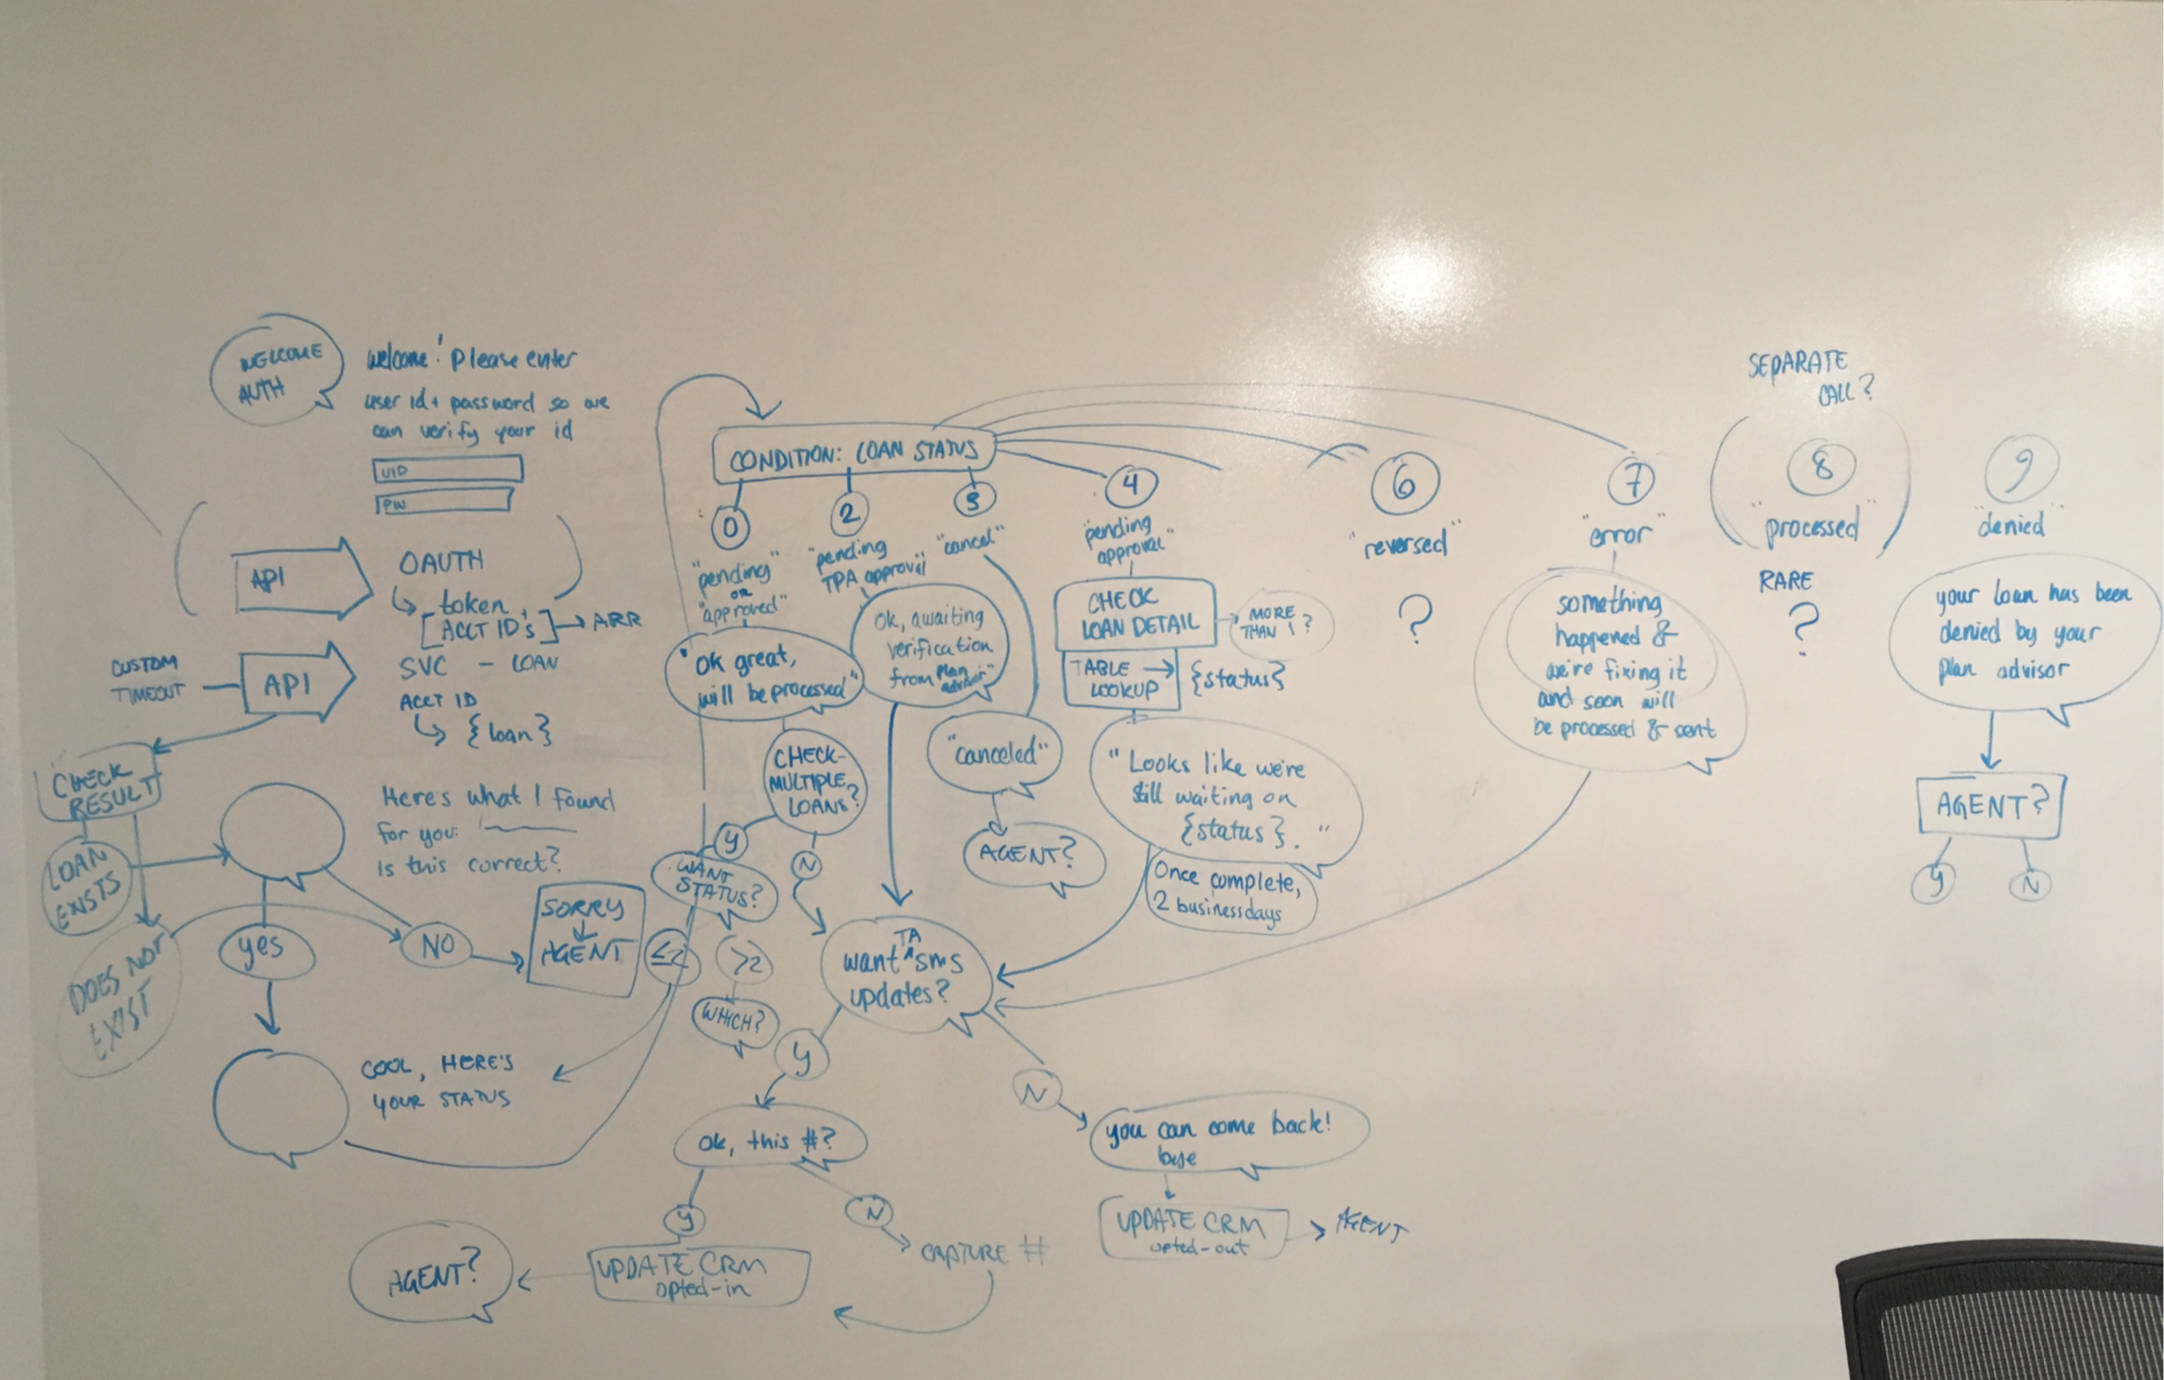 WELCOME
AUTH
welcome! Please enter
user id + password so we
can verify your id
UID
PW
API
OAUTH
token
[ACCT ID's] → ARR
CUSTOM
TIMEOUT
API
SVC - LOAN
ACCT ID
{loan}
CHECK
RESULT
LOAN
EXISTS
DOES NOT
EXIST
Here's what I found
for you:
Is this correct?
yes
NO
SORRY
AGENT
COOL, HERE'S
YOUR STATUS
CONDITION: LOAN STATUS
0
"pending"
OR
"approved"
"Ok great,
will be processed"
CHECK-
MULTIPLE
LOANS?
Y
N
WANT
STATUS?
≤2
>2
WHICH?
2
"pending
TPA approval"
Ok, awaiting
verification
from plan
advisor"
3
"cancel"
"canceled"
AGENT?
4
"pending
approval"
CHECK
LOAN DETAIL
MORE
THAN 1?
TABLE →
LOOKUP
{status}
"Looks like we're
still waiting on
{status}."
Once complete,
2 business days
TA
want ^ sms
updates?
Y
N
ok, this #?
Y
N
CAPTURE #
UPDATE CRM
opted-in
AGENT?
you can come back!
bye
UPDATE CRM
opted-out
AGENT
6
"reversed"
?
7
"error"
something
happened &
we're fixing it
and soon will
be processed & sent
SEPARATE
CALL?
8
"processed"
RARE
?
9
"denied"
your loan has been
denied by your
plan advisor
AGENT?
Y
N